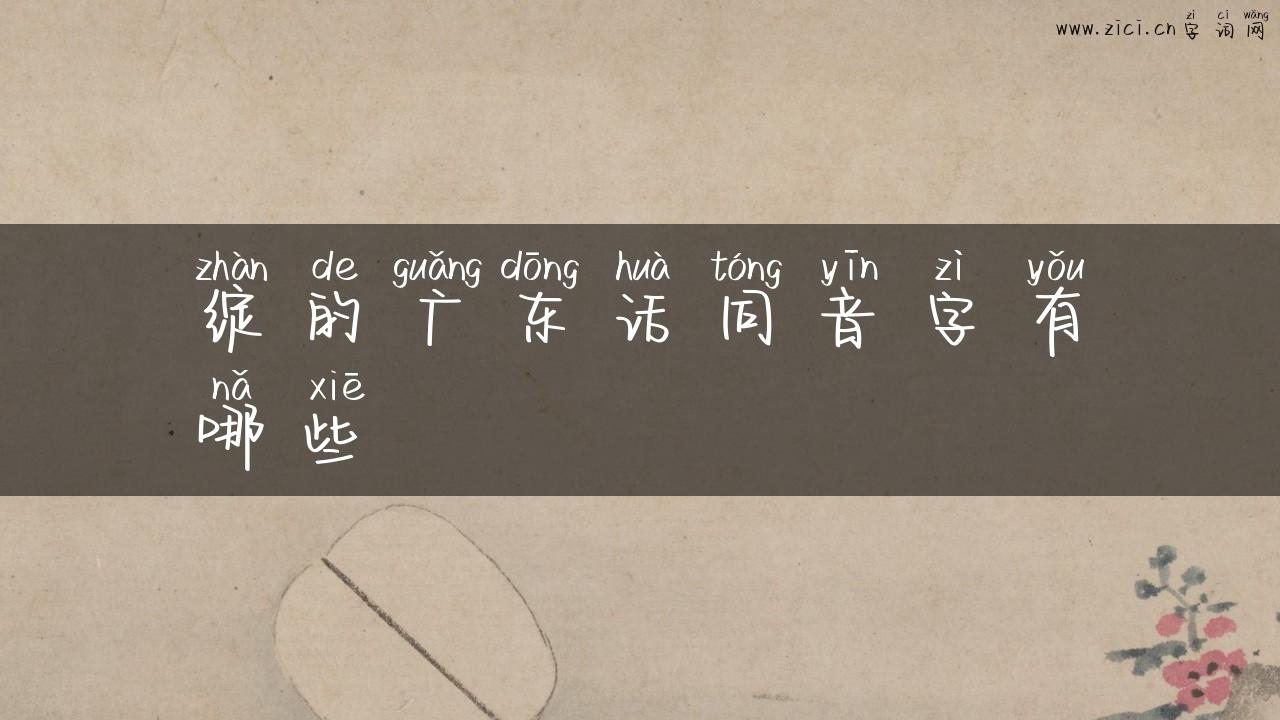 zì cí wǎng
www.zici.cn 字词网
zhàn de guǎng dōng huà tóng yīn zì yǒu
绽的广东话同音字有
nǎ xiē
哪些